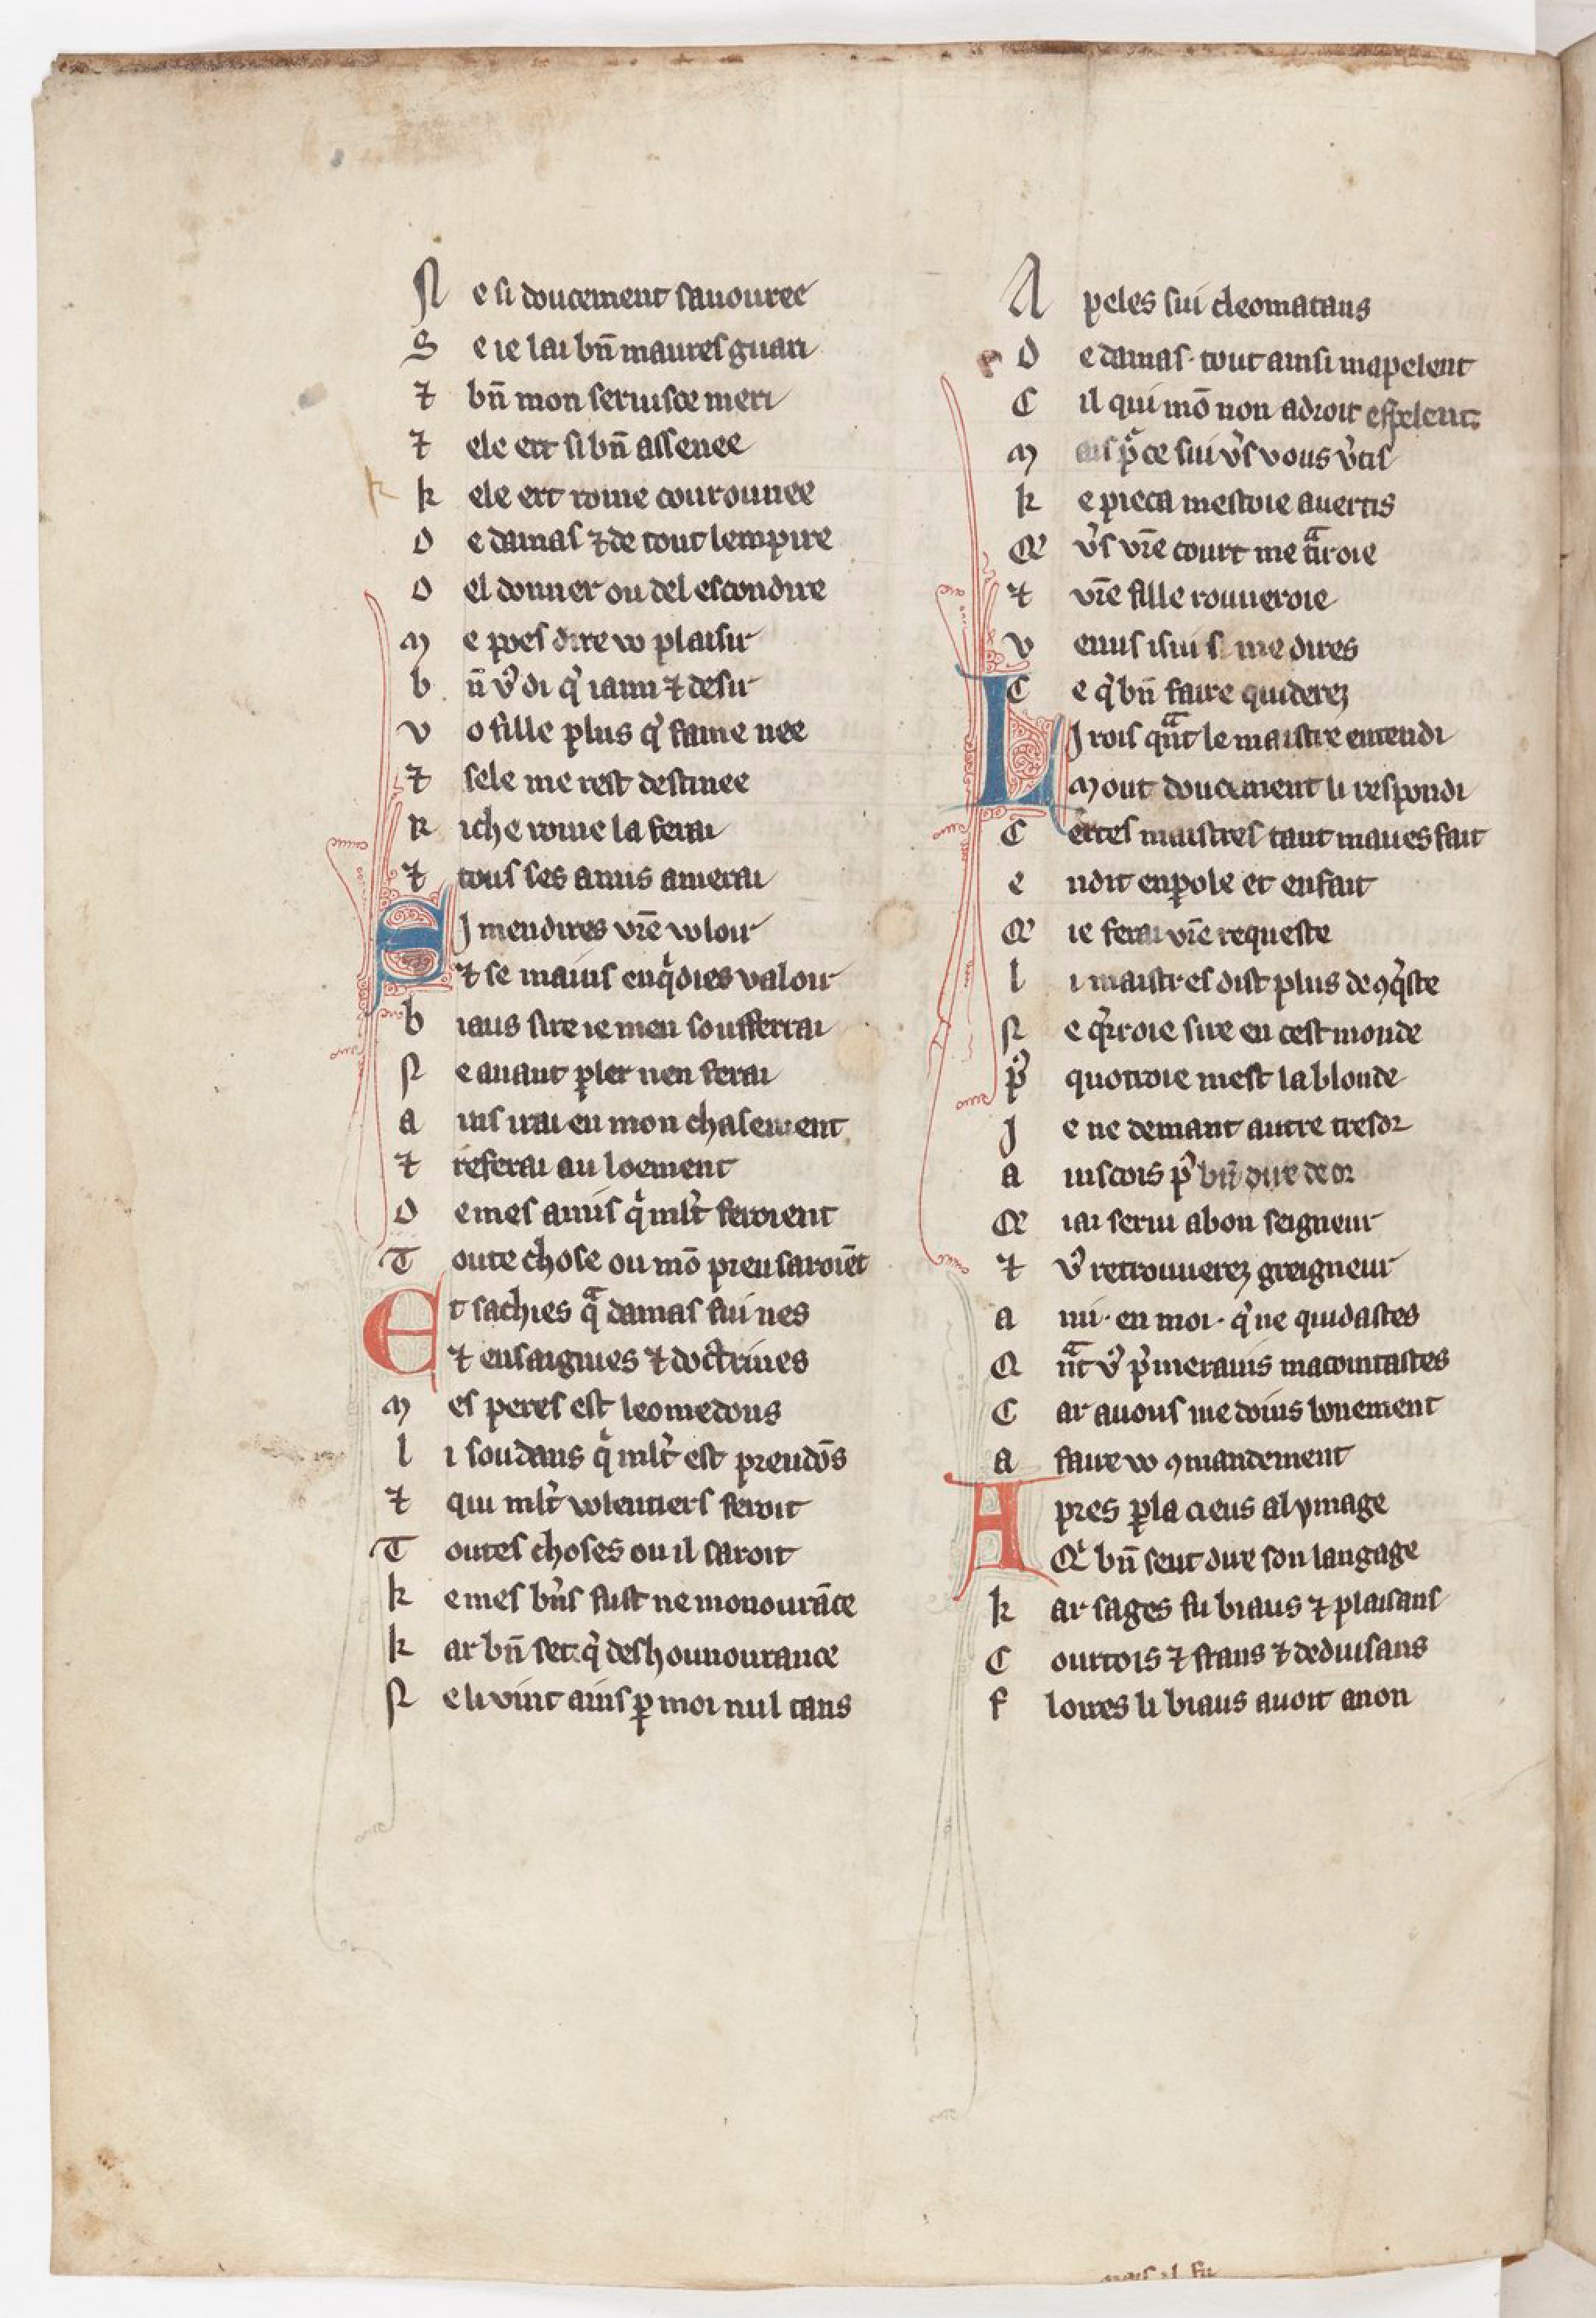 Ne si doucement sauouree
Se ie lai bn̄ maures guari
⁊ bn̄ mon seruisce meri
⁊ ele ert si bn̄ assenee
k ele ert roine courounee
De damas ⁊ de tout lempire
Del donner ou del escondire
Me poes dire vo plaisir
bn̄ vͦ di qͥ iaim ⁊ desir
vo fille plus qͥ fame nee
⁊ sele me rest destinee
Riche roine la ferai
⁊ tous ses amis amerai
SJ mendires vr̄e volour
⁊ se mains enqͥdies valour
biaus sire ie men soufferrai
Ne auant ꝑler nen ferai
ains irai en mon chasement
⁊ referai au loement
De mes amis qͥ ml̄t feroient
Toute chose ou mō preu saroiēt
Et sachies qͣ damas fui nes
⁊ ensaignies ⁊ doctrines
Mes peres est leomedons
li soudans qͥ ml̄t est preudōs
⁊ qui ml̄t volentiers feroit
Toutes choses ou il saroit
ke mes bn̄s fust ne monourāce
kar bn̄ set qͥ deshounourance
Ne li vint ains ꝑ moi nul tans
Apeles sui cleomatans
De damas · tout ainsi mapelent
Cil qui mō non adroit espelent
Mais pͬ ce sui vͬs vous vͬtis
ke pieca mestoie auertis
Qͥ vͬs vr̄e court me tͣiroie
⁊ vr̄e fille rouueroie
venus i sui si me dires
Ce qͥ bn̄ faire quiderez
LJ rois qͣnt le maistre entendi
Mout doucement li respondi
Certes maistres tant maues fait
endit en ꝑole et en fait
Qͥ ie ferai vr̄e requeste
li maistres dist plus de ꝯqͥste
Ne qͥrroie sire en cest monde
pͬ quotroie mest la blonde
Je ne demant autre tresor
ains cois pͬ bn̄ dire de or
Qͥ iai serui a bon seigneur
⁊ vͦ retrouuerez greigneur
ami · en moi · qͥ ne quidastes
Qͣnt vͦ pͥmerains macointastes
Car a vous me doins bonement
a faire vo ꝯmandement
Apres ꝑla cieus al ymage
Qͥ bn̄ seut dire son langage
kar sages fu biaus ⁊ plaisans
Courtois ⁊ frans ⁊ deduisans
floires li biaus auoit anon